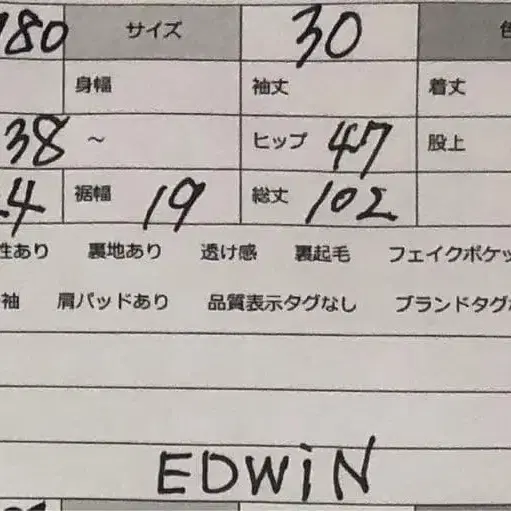 180 サイズ 30
身幅 袖丈 着丈
38 ~ ヒップ 47 股上
4 裾幅 19 総丈 102
性あり 裏地あり 透け感 裏起毛 フェイクポケッ
袖 肩パッドあり 品質表示タグなし ブランドタグ
EDWiN